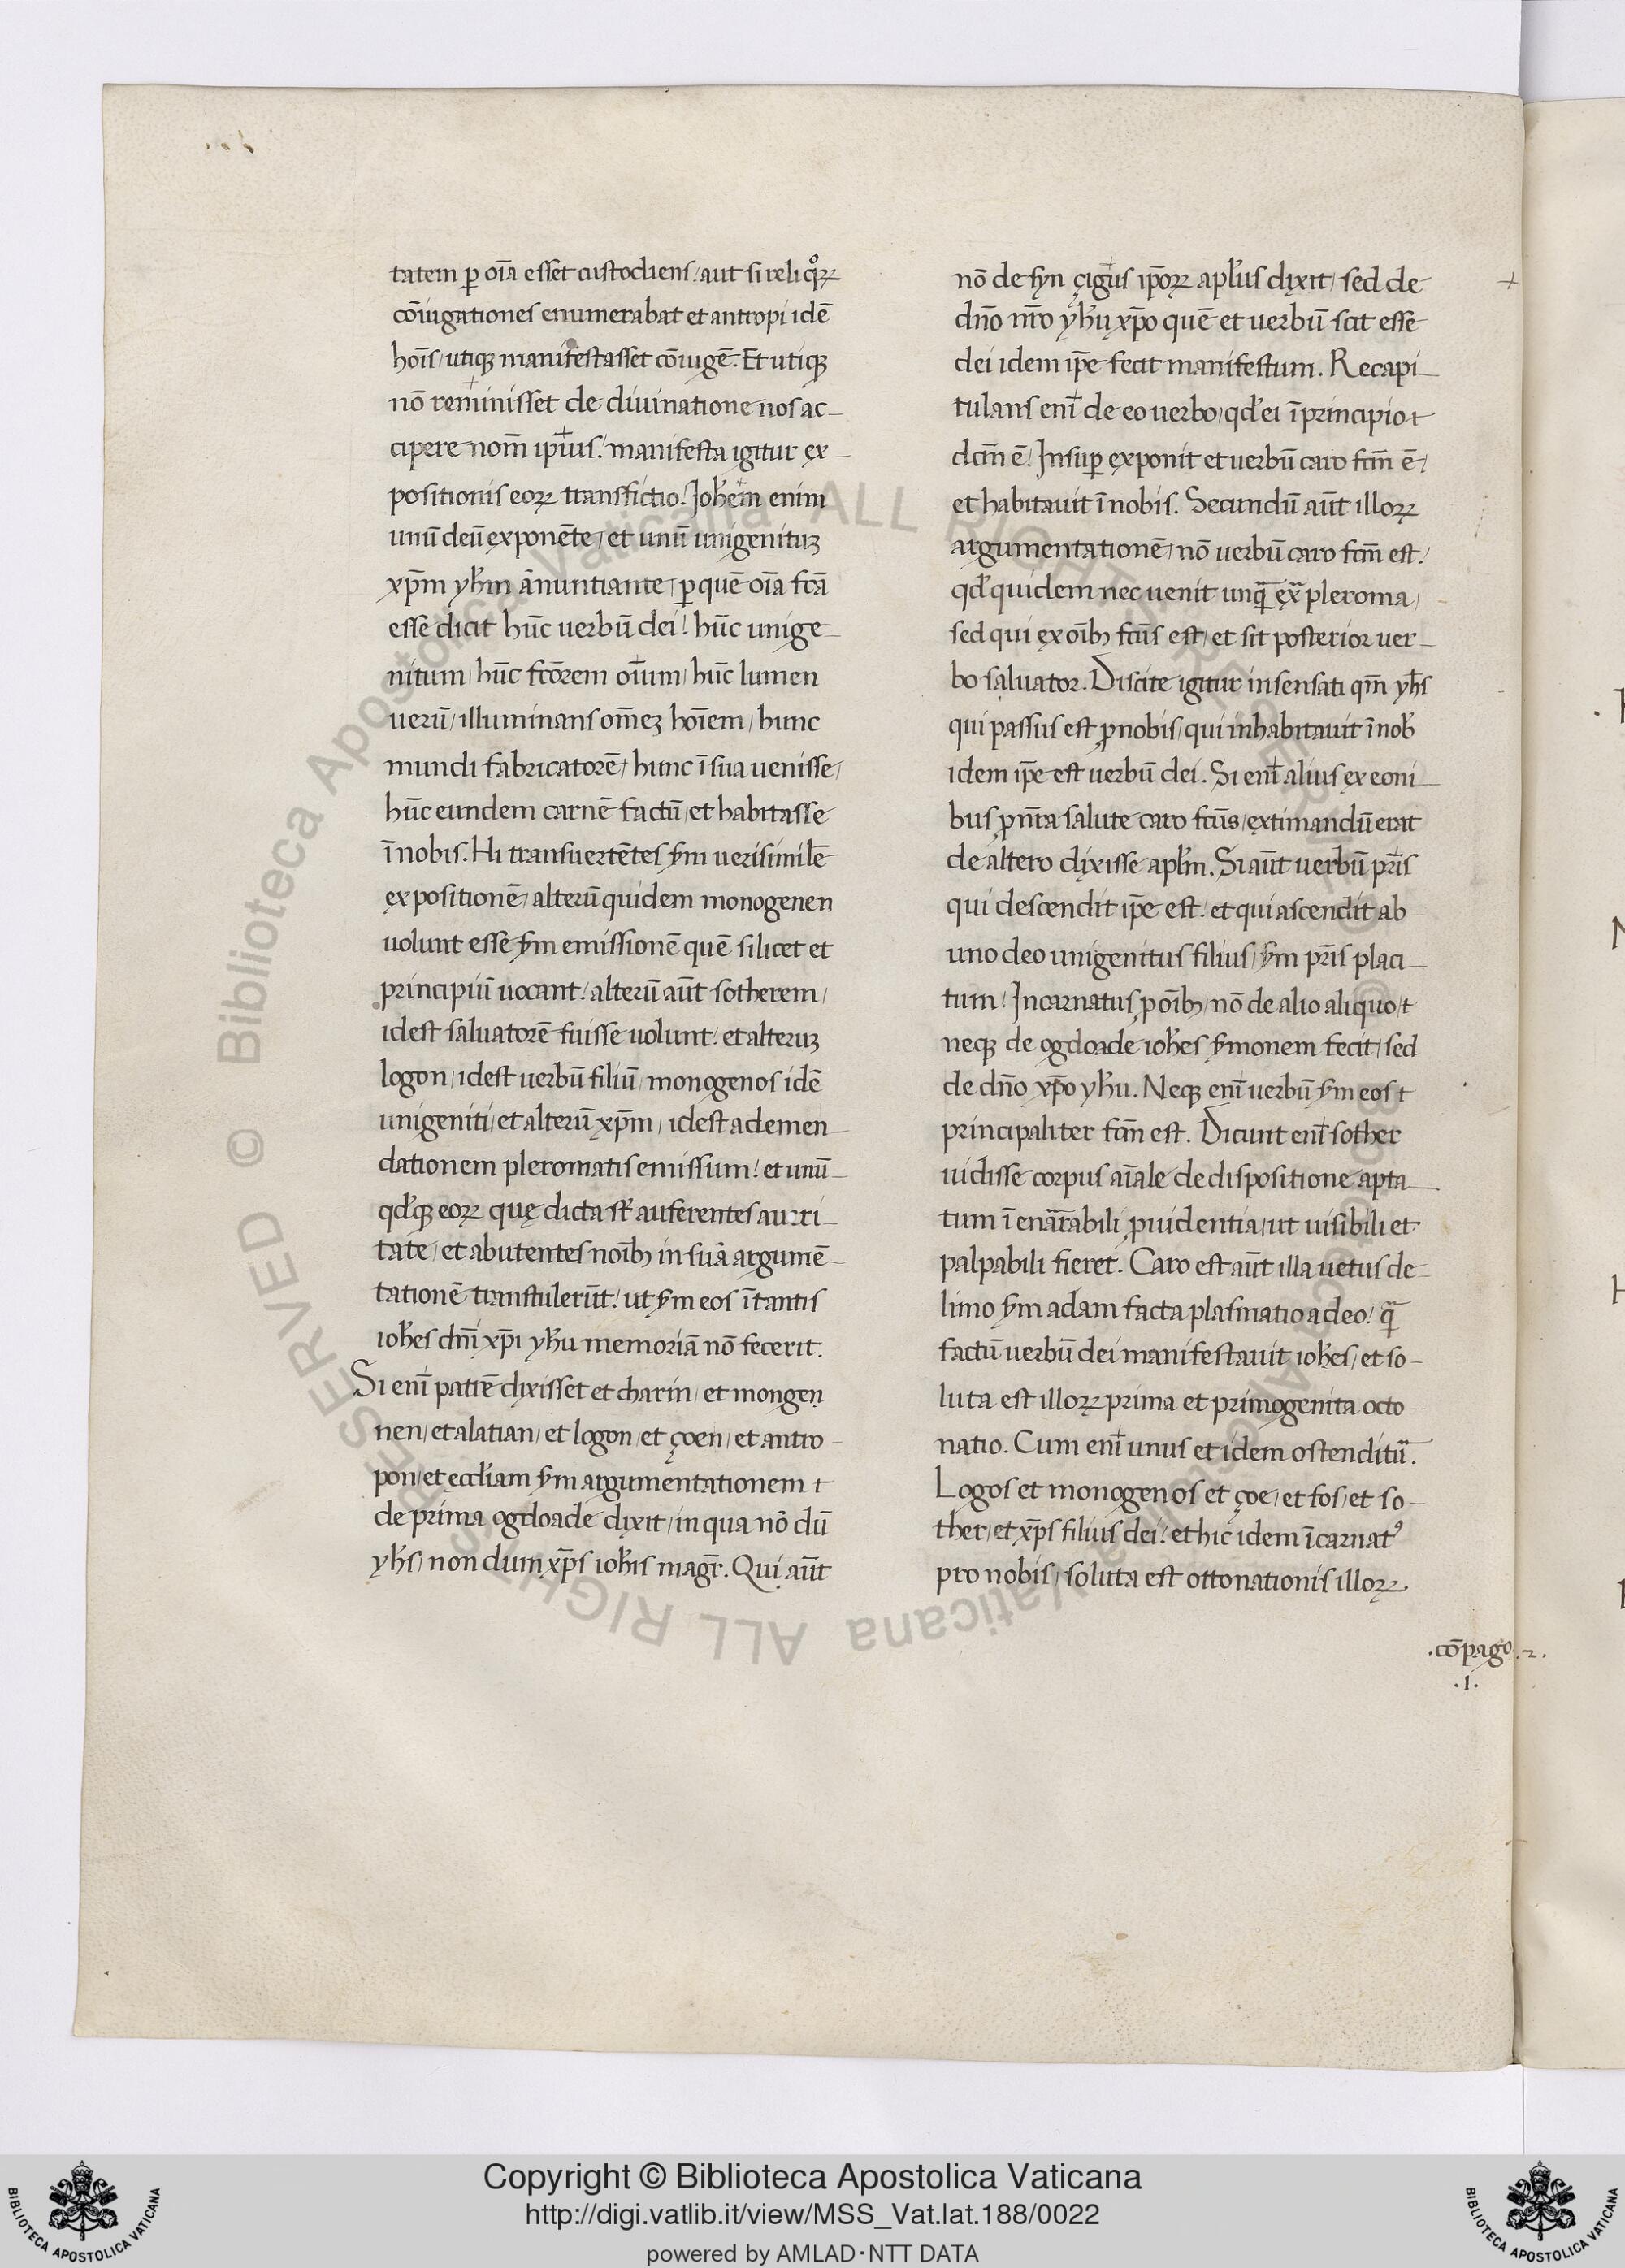 tatem ꝑ oı̄a esset custodiens / aut si reliqͦꝝ
cōiugationes enumerabat et antropi idē
hoı̄s / utiqꝫ manifestasset cōiugē. Et utiqꝫ
nō reminisset de diuinatione nos ac-
cipere nom̄ ipīus! manifesta igitur ex-
positionis eoꝝ transfictio! Ioħem enim
unū deū exponēte / et unū unigenituꝫ
xp̄m yħm ānuntiante / ꝑ quē oı̄a fcā
esse dicit hūc uerbū dei! hūc unige-
nitum / hūc fcōrem oı̄um / hūc lumen
uerū / illuminans om̄eꝫ hoı̄em / hunc
mundi fabricatorē / hunc ī sua uenisse /
hūc eundem carnē factū / et habitasse
ī nobis. Hi transuertētes ẜm uerisimilē
expositionē / alterū quidem monogenen
uolunt esse ẜm emissionē quē silicet et
principiū uocant! alterū aūt sotherem /
idest saluatorē fuisse uolunt! et alteruꝫ
logon / idest uerbū filiū / monogenos idē
unigeniti / et alterū xp̄m / idest ademen-
dationem pleromatis emissum! et unū-
qđqꝫ eoꝝ quę dicta sť auferentes a ueri-
tate / et abutentes noı̄bꝫ in suā argumē-
tationē transtulerūt! ut ẜm eos ī tantis
ioħes dn̄i xp̄i yħu memoriā nō fecerit.
Si enī patrē dixisset et charin / et mongen
nen / et alatian / et logon / et çoen / et antro-
pon / et eccliam ẜm argumentationem
de prima ogdoade dixit / in qua nō dū
yħs / non dum xp̄s ioħis magr̄. Qui aūt
nō de syn çigīus ip̄oꝝ aplus dixit / sed de
dn̄o nr̄o yħu xp̄o quē et uerbū scit esse
dei idem ip̄e fecit manifestum. Recapi-
tulans enī de eo uerbo / qđ ei ī principio
dcm̄ ē! Insuꝑ exponit et uerbū caro fcm̄ ē /
et habitauit ī nobis. Secundū aūt illoꝝ
argumentationē / nō uerbū caro fcm̄ est!
qđ quidem nec uenit unq̄ ex̄ pleroma /
sed qui ex oı̄bꝫ fcūs est / et sit posterior uer-
bo saluator. Discite igitur insensati qm̄ yħs
qui passus est ꝓ nobis / qui inhabitauit ī nob̄
idem ip̄e est uerbū dei. Si enī alius ex eoni-
bus ꝓ nr̄a salute caro fcūs / extimandū erat
de altero dixisse aplm. Si aūt uerbū pr̄is
qui descendit ip̄e est! et qui ascendit ab
uno deo unigenitus filius / ẜm pr̄is placi-
tum! Incarnatus ꝓ oı̄bꝫ / nō de alio aliquo /
neqꝫ de ogdoade ioħes ẜmonem fecit / sed
de dn̄o xp̄o yħu. Neqꝫ enī uerbū ẜm eos
principaliter fcm̄ est. Dicunt enī sother
iuidisse corpus aı̄ale de dispositione apta-
tum ī enārabili ꝓuidentia / ut uisibili et
palpabili fieret. Caro est aūt illa uetus de
limo ẜm adam facta plasmatio a deo! q̄
factū uerbū dei manifestauit ioħes / et so-
luta est illoꝝ prima et primogenita octo
natio. Cum enī unus et idem ostenditū.
Logos et monogenos et çoe / et fos / et so-
ther / et xp̄s filius dei! et hic idem īcarnatꝰ
pro nobis / soluta est ottonationis illoꝝ.
.cōpago.
.1.
Copyright © Biblioteca Apostolica Vaticana
http://digi.vatlib.it/view/MSS_Vat.lat.188/0022
powered by AMLAD·NTT DATA